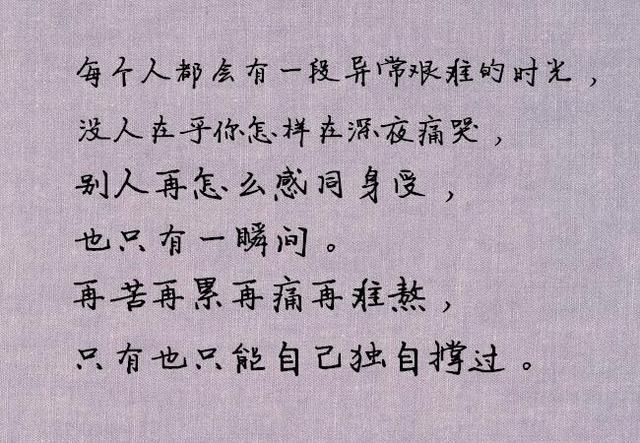 每个人都会有一段异常艰难的时光，
没人在乎你怎样在深夜痛哭，
别人再怎么感同身受，
也只有一瞬间。
再苦再累再痛再难熬，
只有也只能自己独自撑过。